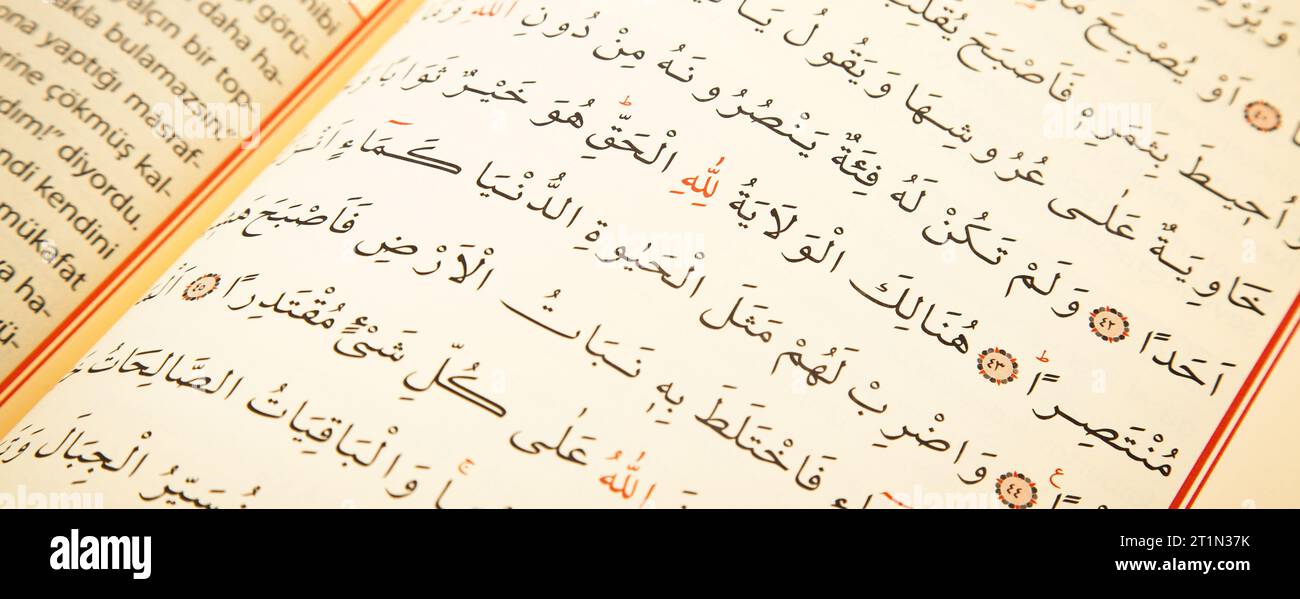 daha ha-
yalçın bir top-
bulamazsın."
yaptığı masraf-
çökmüş kal-
diyordu.
kendini
mükafat
ha-
اَوْ يُصْبِحَ ٤٠
اُح۪يطَ بِثَمَرِه۪ فَاَصْبَحَ يُقَلِّبُ
خَاوِيَةٌ عَلٰى عُرُوشِهَا وَيَقُولُ
اَحَدًا ٤٢ وَلَمْ تَكُنْ لَهُ فِئَةٌ يَنْصُرُونَهُ مِنْ دُونِ اللّٰهِ
مُنْتَصِرًا ٤٣ هُنَالِكَ الْوَلَايَةُ لِلّٰهِ الْحَقِّ هُوَ خَيْرٌ ثَوَابًا
٤٤ وَاضْرِبْ لَهُمْ مَثَلَ الْحَيٰوةِ الدُّنْيَا كَمَٓاءٍ
فَاخْتَلَطَ بِه۪ نَبَاتُ الْاَرْضِ فَاَصْبَحَ
اللّٰهُ عَلٰى كُلِّ شَيْءٍ مُقْتَدِرًا ٤٥
وَالْبَاقِيَاتُ الصَّالِحَاتُ
نُسَيِّرُ الْجِبَالَ
alamy
Image ID: 2T1N37K
www.alamy.com